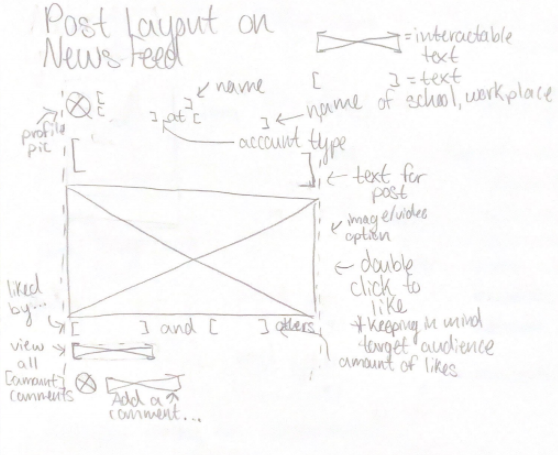 Post Layout on
News Feed
= interactable
text
[ ] = text
name
[
[ ] at [ ]
name of school, workplace
profile
pic
account type
[ ]
text for
post
image/video
option
double
click to
like
*keeping in mind
target audience
liked
by...
[ ] and [ ] others
amount of likes
view
all
[amount]
comments
Add a
comment...